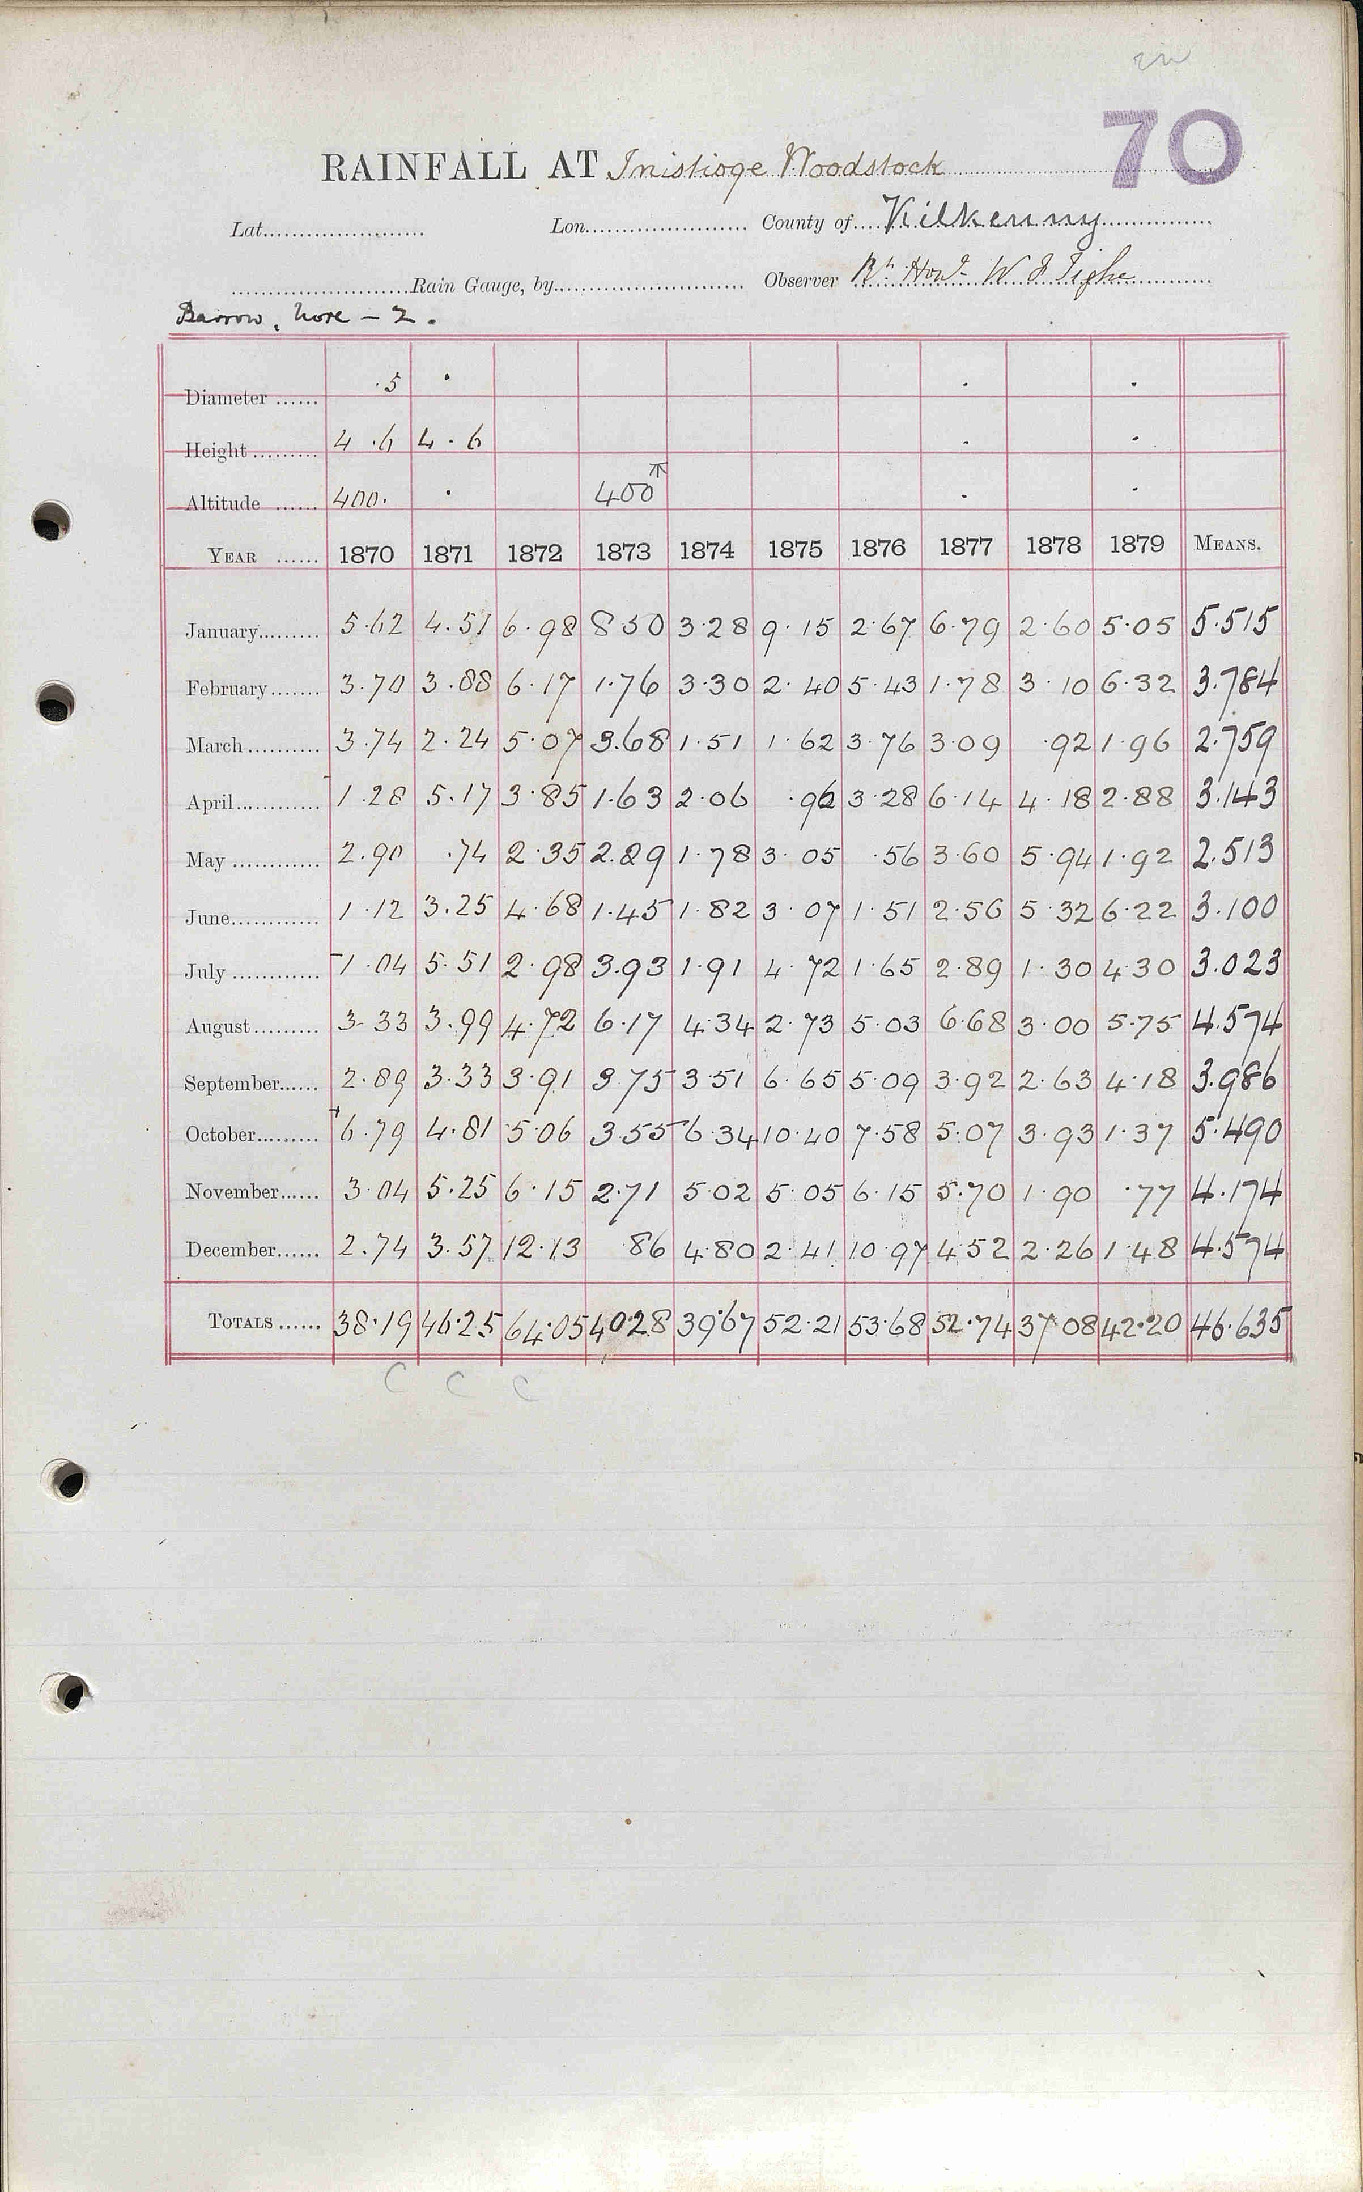 70
RAINFALL AT Inistioge Woodstock
Lat. Lon. County of Kilkenny
Rain Gauge, by Observer Rt. Hon. W F Tighe
Barrow, Nore – 2.
Diameter ...... .5 . . .
Height ......... 4 .6 4 . 6 . .
Altitude ...... 400. . 400 . .
YEAR ...... 1870 1871 1872 1873 1874 1875 1876 1877 1878 1879 MEANS.
January ......... 5.62 4.51 6.98 8 50 3.28 9.15 2.67 6.79 2.60 5.05 5.515
February ....... 3.70 3.88 6.17 1.76 3.30 2.40 5.43 1.78 3.10 6.32 3.784
March .......... 3.74 2.24 5.07 3.68 1.51 1.62 3.76 3.09 .92 1.96 2.759
April ............ 1.28 5.17 3.85 1.63 2.06 .96 3.28 6.14 4.18 2.88 3.143
May ............ 2.90 .74 2.35 2.29 1.78 3.05 .56 3.60 5.94 1.92 2.513
June ............ 1.12 3.25 4.68 1.45 1.82 3.07 1.51 2.56 5.32 6.22 3.100
July ............ 1.04 5.51 2.98 3.93 1.91 4.72 1.65 2.89 1.30 4.30 3.023
August ......... 3.33 3.99 4.72 6.17 4.34 2.73 5.03 6.68 3.00 5.75 4.574
September ...... 2.89 3.33 3.91 3 75 3.51 6.65 5.09 3.92 2.63 4.18 3.986
October ......... 6.79 4.81 5.06 3.55 6.34 10.40 7.58 5.07 3.93 1.37 5.490
November ...... 3.04 5.25 6.15 2.71 5.02 5.05 6.15 5.70 1.90 .77 4.174
December ...... 2.74 3.57 12.13 86 4.80 2.41 10.97 4.52 2.26 1.48 4.574
TOTALS ...... 38.19 46.25 64.05 40.28 39.67 52.21 53.68 52.74 37.08 42.20 46.635
C C C